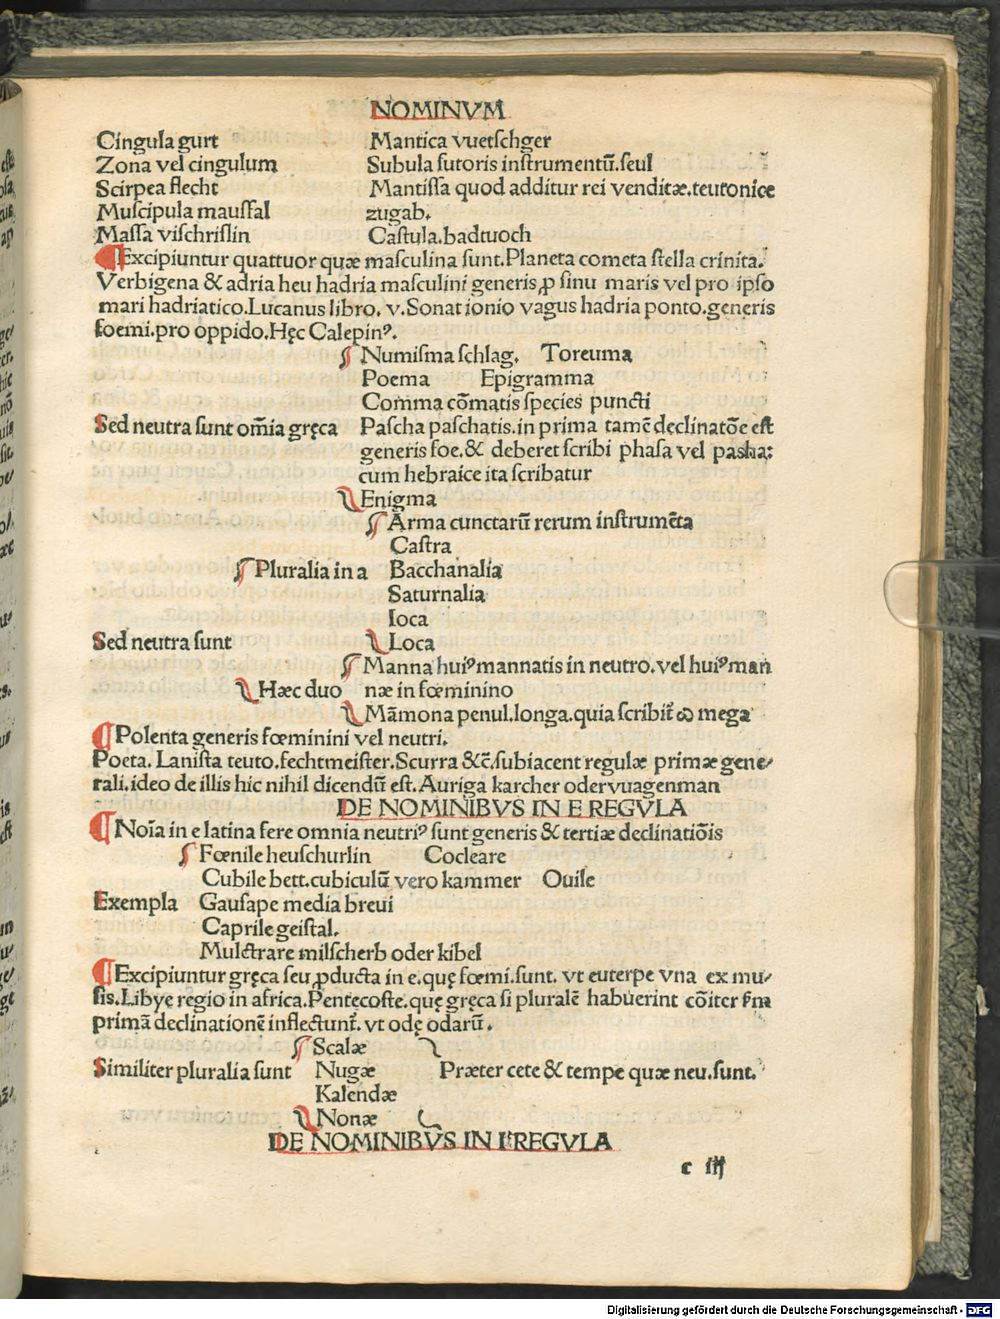 NOMINVM
Cingula gurt
Zona vel cingulum
Scirpea flecht
Muscipula maussfal
Massa vischrislin
Mantica vuetschger
Subula sutoris instrumentū.seul
Mantissa quod additur rei venditæ.teutonice
zugab.
Castula.badtuoch
Excipiuntur quattuor quæ masculina sunt.Planeta cometa stella crinita.
Verbigena & adria heu hadria masculini generis,ꝓ sinu maris vel pro ipso
mari hadriatico.Lucanus libro. v.Sonat ionio vagus hadria ponto.generis
foemi.pro oppido.Hęc Calepinꝰ.
Numisma schlag. Toreuma
Poema Epigramma
Comma cōmatis species puncti
Sed neutra sunt om̄ia gręca Pascha paschatis.in prima tamē declinatōe est
generis foe.& deberet scribi phasa vel pasha:
cum hebraice ita scribatur
Enigma
Arma cunctarū rerum instrumēta
Castra
Pluralia in a Bacchanalia
Saturnalia
Ioca
Sed neutra sunt Loca
Manna huiꝰ mannatis in neutro.vel huiꝰ man
Hæc duo næ in fœminino
Māmona penul.longa.quia scribit̄ ω mega
Polenta generis fœminini vel neutri.
Poeta. Lanista teuto.fechtmeister.Scurra &c̄.subiacent regulæ primæ gene-
rali.ideo de illis hic nihil dicendū est.Auriga karcher oder vuagenman
DE NOMINIBVS IN E REGVLA
Noīa in e latina fere omnia neutriꝰ sunt generis & tertiæ declinatiōis
Fœnile heuschurlin Cocleare
Cubile bett.cubiculū vero kammer Ouile
Exempla Gausape media breui
Caprile geistal.
Mulctrare milscherb oder kibel
Excipiuntur gręca seu ꝓducta in e.quę fœmi.sunt. vt euterpe vna ex mu-
sis.Libye regio in africa.Pentecoste.quę gręca si pluralē habuerint cōiter fm
primā declinationē inflectunt̄. vt odę odarū.
Scalæ
Similiter pluralia sunt Nugæ Præter cete & tempe quæ neu.sunt.
Kalendæ
Nonæ
DE NOMINIBVS IN I REGVLA
c iij
Digitalisierung gefördert durch die Deutsche Forschungsgemeinschaft - DFG